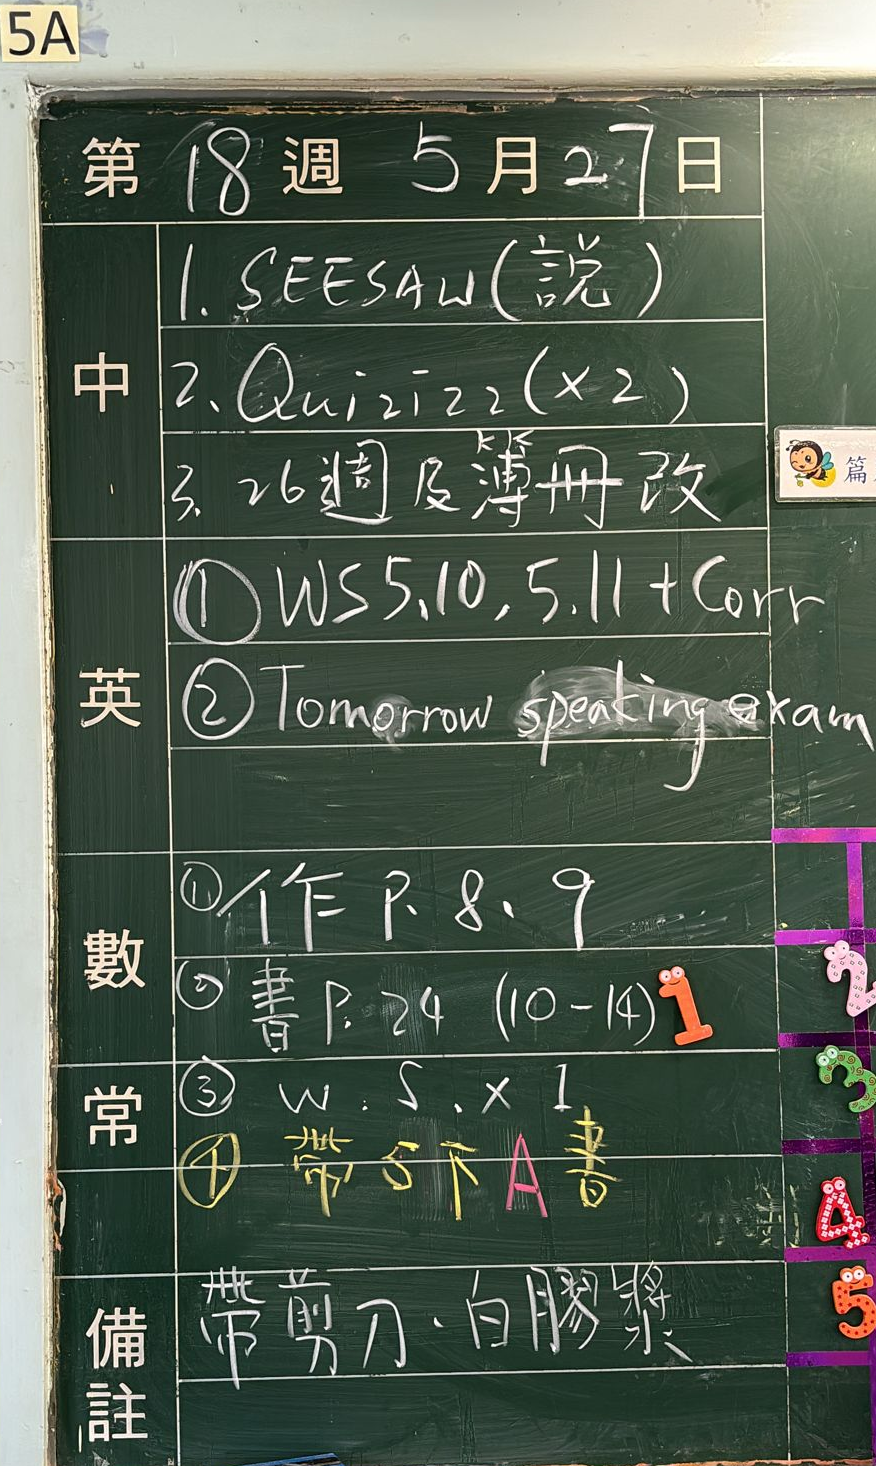 5A
第 18 週 5 月 27 日
中
1. SEESAW (說)
2. Quizizz (×2)
3. 26週及簿冊改
篇
英
① WS 5.10, 5.11 + Corr
② Tomorrow speaking exam
數
① 作 P. 8、9
② 書 P. 24 (10-14)
1
2
常
③ W.S. × 1
3
④ 帶 5下A書
4
備註
帶剪刀、白膠漿
5